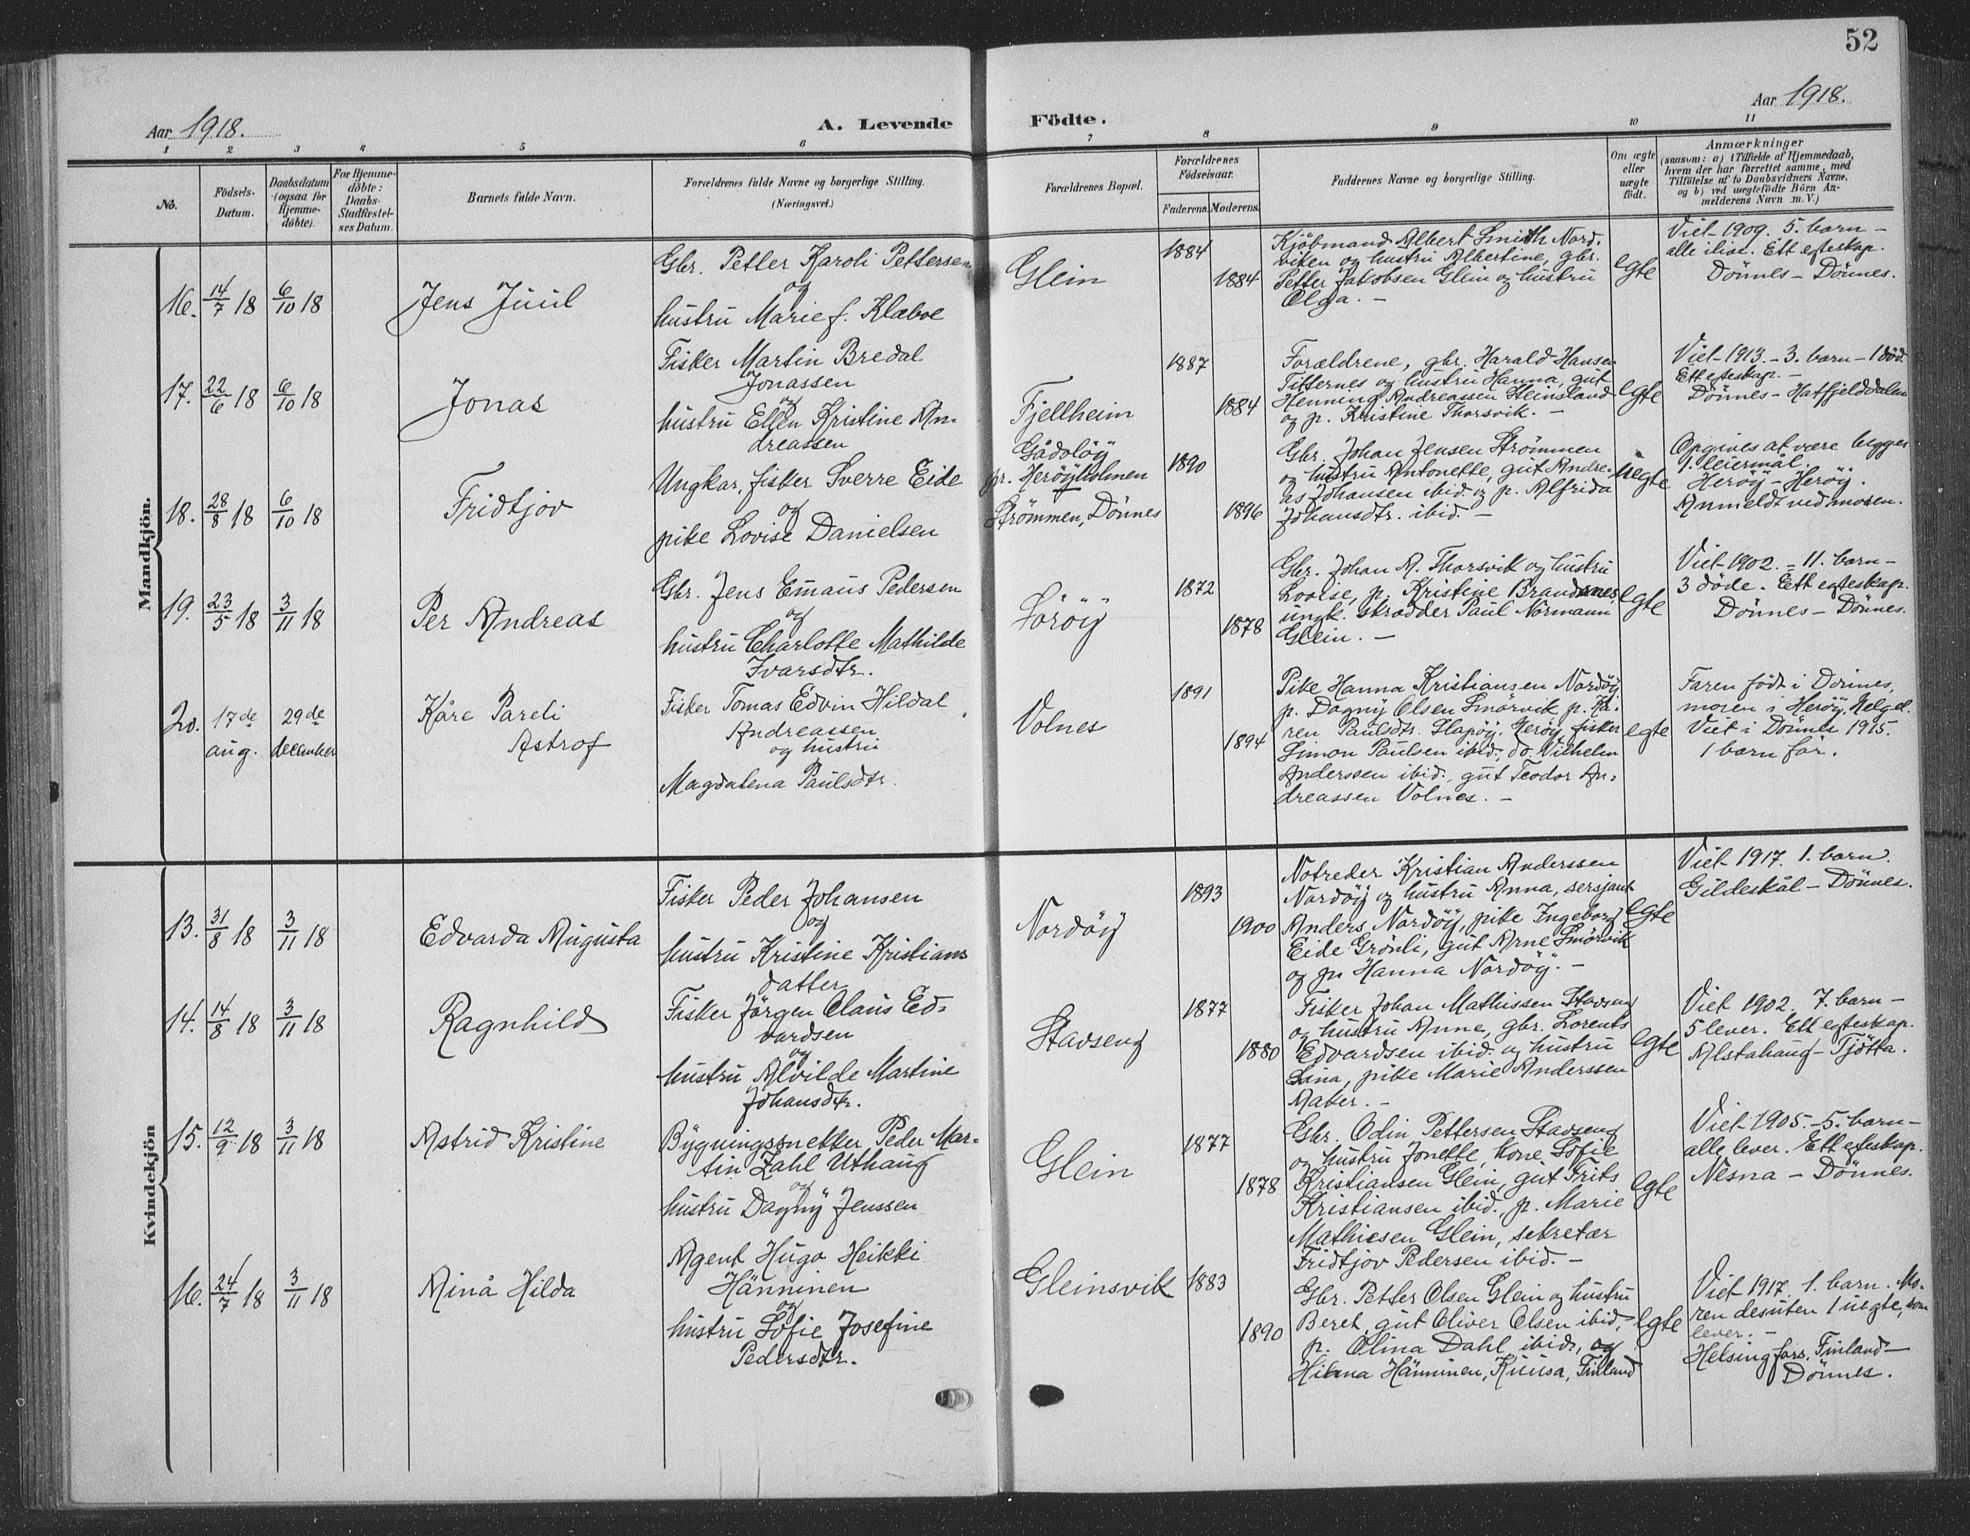 52
Aar 1918.
A. Levende Födte.
Aar 1918.
1 2 3 4 5 6 7 8 9 10 11
No.
Födsels-
Datum.
Daabsdatum
(ogsaa for
Hjemme-
döbte).
For Hjemme-
döbte:
Daabs-
Stadfæstel-
ses Datum.
Barnets fulde Navn.
Forældrenes fulde Navne og borgerlige Stilling.
(Næringsvei.)
Forældrenes Bopæl.
Forældrenes
Födselsaar.
Faderens. Moderens.
Faddernes Navne og borgerlige Stilling.
Om ægte
eller
uægte
födt.
Anmærkninger
(saasom: a) i Tilfælde af Hjemmedaab,
hvem der har forrettet samme, med
Tilföielse af to Daabsvidners Navne,
og b) ved uægtefödte Börn An-
melderens Navn m. V.)
Mandkjön.
16. 14/7 18 6/10 18
Jens Juul
Gbr. Petter Karoli Pettersen
og
hustru Marie f. Klæboe
Glein
1884
1884
Kjöbmand Albert Smith Nord-
viken og hustru Albertine, gbr.
Petter Jakobsen Glein og hustru
Olga. –
egte
Viet 1909. 5. barn –
alle ilive. Ett egteskap.
Dönnes – Dönnes.
17. 22/6 18 6/10 18
Jonas
Fisker Martin Bredal
Jonassen
og
hustru Ellen Kristine An-
dreassen
Fjellheim
1887
1884
Forældrene, gbr. Harald Hansen
Titternes og hustru Hanna, gut
Henning Andreassen Steinsland
og p. Kristine Thorsvik. –
egte
Viet 1913. – 3. barn – 1 död.
Ett egteskap. –
Dönnes – Hatfjelddalen
18. 28/8 18 6/10 18
Fridtjov
Ungkar, fisker Sverre Eide
og
pike Lovise Danielsen
Gåsööy
pr. Heröyholmen
Strömmen, Dönnes
1890
1896
Gbr. Johan Jensen Strömmen
og hustru Antonette, gut Andre-
as Johansen ibid. og p. Alfrida
Johansdtr. ibid. –
uegte
Opgives at være begges
1. leiermål.
Heröy – Heröy.
Anmeldt ved moren.
19. 23/5 18 3/11 18
Per Andreas
Gbr. Jens Emaus Pedersen
og
hustru Charlotte Mathilde
Ivarsdtr.
Söröy
1872
1878
Gbr. Johan A. Thorsvik og hustru
Lovise, p. Kristine Brandsnes,
ungk. skrædder Paul Normann
Glein. –
egte
Viet 1902. – 11. barn –
3 döde. Ett egteskap.
Dönnes – Dönnes.
20. 17de aug. 29de december
Kåre Pareli
Astrof
Fisker Tomas Edvin Hildal
Andreassen
og hustru
Magdalena Paulsdtr.
Volnes
1891
1894
Pike Hanna Kristiansen Nordöy
p. Dagny Olsen Smörvik p. Ka-
ren Paulsdtr. Slapöy, Heröy, fisker
Simon Paulsen ibid., do. Vilhelm
Anderssen ibid., gut Teodor An-
dreassen Volnes. –
egte
Faren födt i Dönnes,
moren i Heröy, Helgel.
Viet i Dönnes 1915.
1 barn för.
Kvindekjön
13. 31/8 18 3/11 18
Edvarda Augusta
Fisker Peder Johansen
og
hustru Kristine Kristians
datter
Nordöy
1893
1900
Notreder Kristian Anderssen
Nordöy og hustru Anna, sersjant
Anders Nordöy, pike Ingeborg
Eide Grönli, gut Arne Smörvik
og pn Hanna Nordöy. –
egte
Viet 1917. 1. barn.
Gildeskål – Dönnes.
14. 14/8 18 3/11 18
Ragnhild
Fisker Jörgen Claus Ed-
vardsen
og
hustru Alvilde Martine
Johansdtr.
Stavseng
1877
1880
Fisker Johan Mathissen Stavseng
og hustru Anne, gbr. Lorents
Edvardsen ibid. og hustru
Lina, pike Marie Anderssen
Aaker. –
egte
Viet 1902. 7. barn –
5 lever. Ett egteskap.
Alstahaug – Tjötta.
15. 12/9 18 3/11 18
Astrid Kristine
Bygningssnekker Peder Mar-
tin Zahl Uthaug
og
hustru Dagny Jenssen
Glein
1877
1878
Gbr. Odin Pettersen Stavseng
og hustru Jonette, kone Sofie
Kristiansen Glein, gut Frits
Kristiansen ibid., p. Marie
Mathiesen Glein, sekretær
Fridtjov Pedersen ibid. –
egte
Viet 1905. – 5. barn –
alle lever. Ett egteskap.
Nesna – Dönnes.
16. 24/7 18 3/11 18
Ainå Hilda
Agent Hugo Heikki
Hänninen
og
hustru Sofie Josefine
Pedersdtr.
Gleinsvik
1883
1890
Gbr. Petter Olsen Glein og hustru
Beret, gut Oliver Olsen ibid.,
p. Olina Dahl ibid., og
Hilma Hänninen, Kuusa, Finland
egte
Viet 1917. 1. barn. Mo-
ren desuten 1 uegte, som
lever. –
Helsingfors, Finland –
Dönnes.